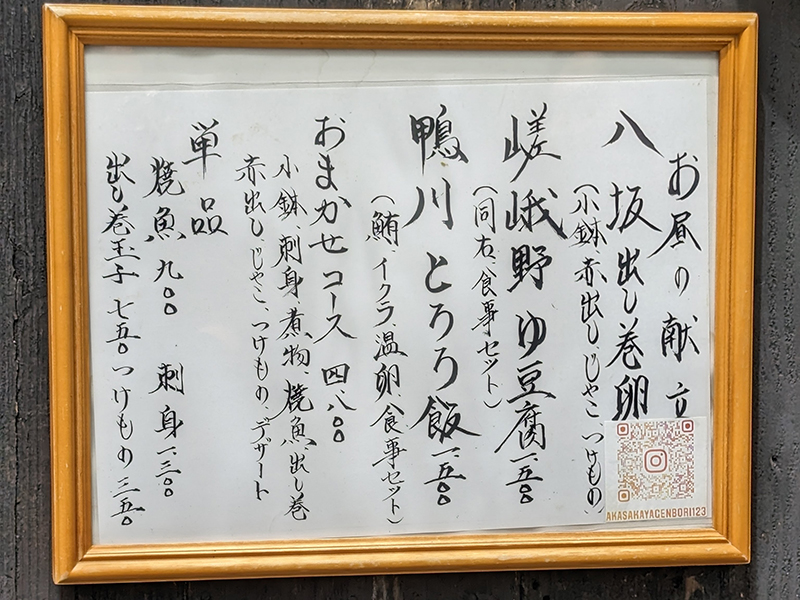 お昼の献立
八坂出し巻卵
(小鉢、赤出し、じゃこ、つけもの、
嵯峨野ゆ豆腐 一、五〇〇
(同右、食事セット)
鴨川とろろ飯 一、五〇〇
(鮪、イクラ、温卵、食事セット)
おまかせコース 四、八〇〇
小鉢、刺身、煮物、焼魚、出し巻
赤出し、じゃこ、つけもの、デザート
単品
焼魚 九〇〇 刺身 一、三〇〇
出し巻玉子 七五〇 つけもの 三五〇
AKASAKAYAGENBORI123